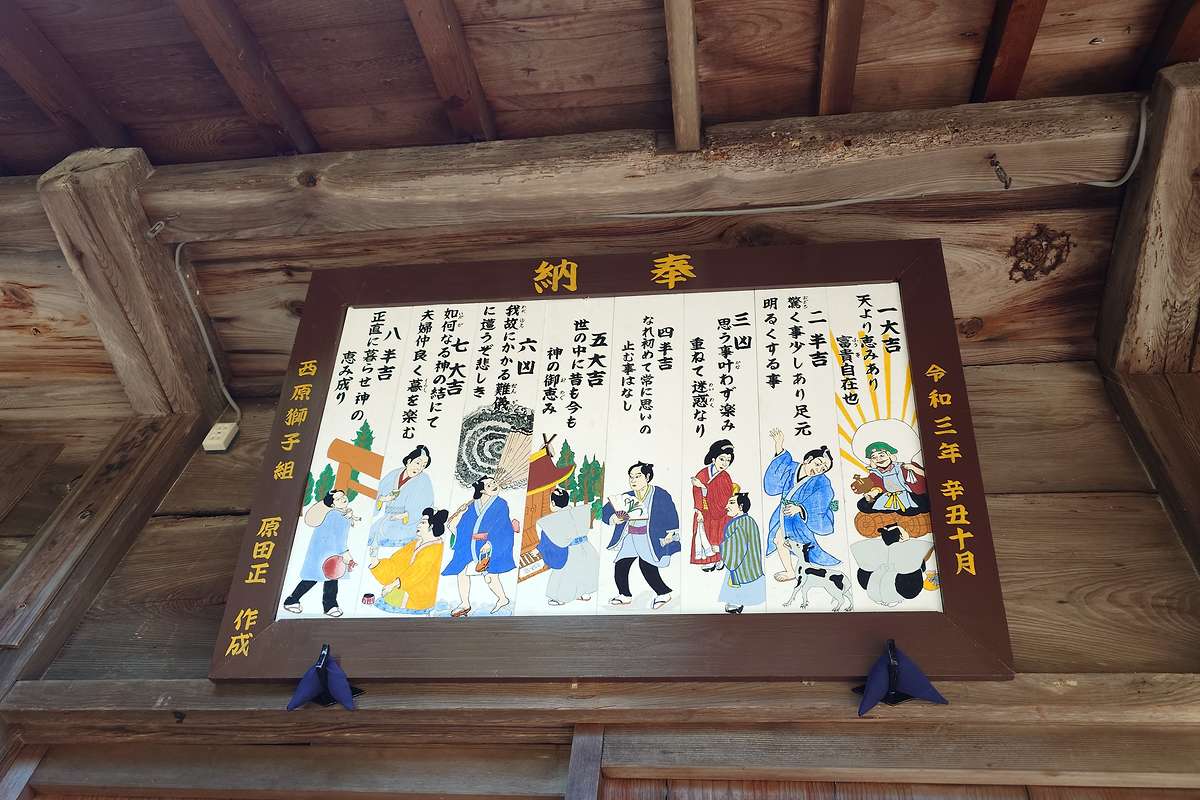 奉納
令和三年 辛丑十月
一大吉
天より恵みあり
富貴自在也
二半吉
驚く事少しあり足元
明るくする事
三凶
思う事叶わず楽み
重ねて迷惑なり
四半吉
なれ初めて常に思いの
止む事はなし
五大吉
世の中に昔も今も
神の御恵み
六凶
我故にかかる難儀
に遭うぞ悲しき
七大吉
如何なる神の結にて
夫婦仲良く暮を楽む
八半吉
正直に暮らせ神の
恵み成り
西原獅子組 原田正 作成